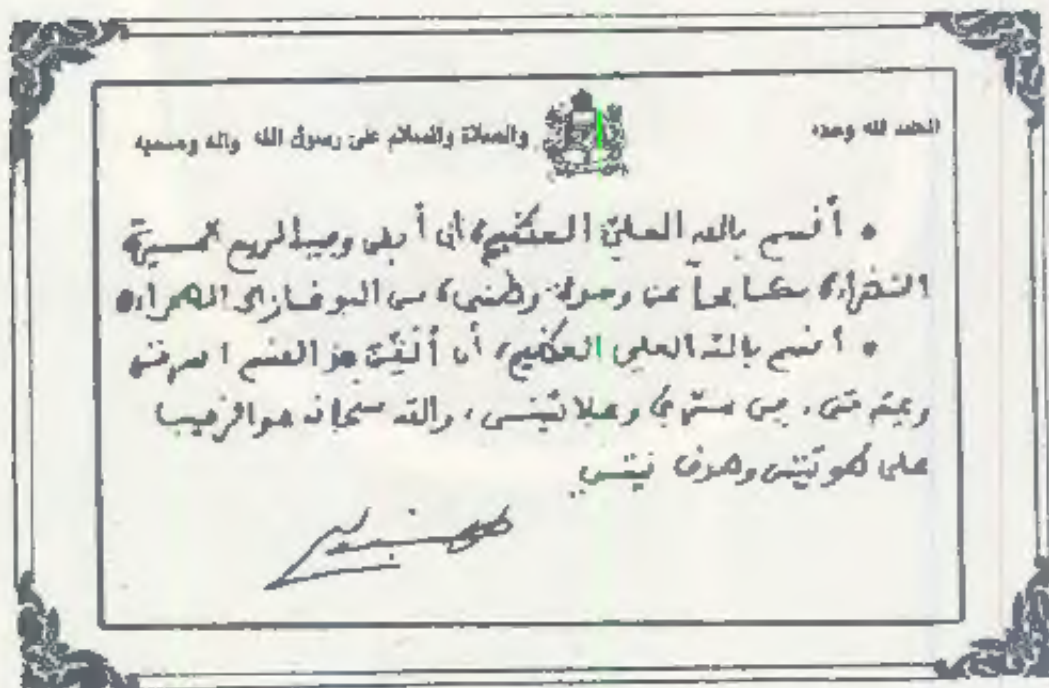 الحمد لله وحده والصلاة والسلام على رسول الله وآله وصحبه
• أقسم بالله العليّ العظيم، أن أبقى وفيا لروح المسيرة
الخضراء، مكافحاً عن وحدة وطني، من البوغاز إلى الصحراء
• أقسم بالله العلي العظيم، أن ألقّن هذا القسم أسرتي
وعترتي، في سري وعلانيتي، والله سبحانه هو الرقيب
على طويتي وصدق نيتي